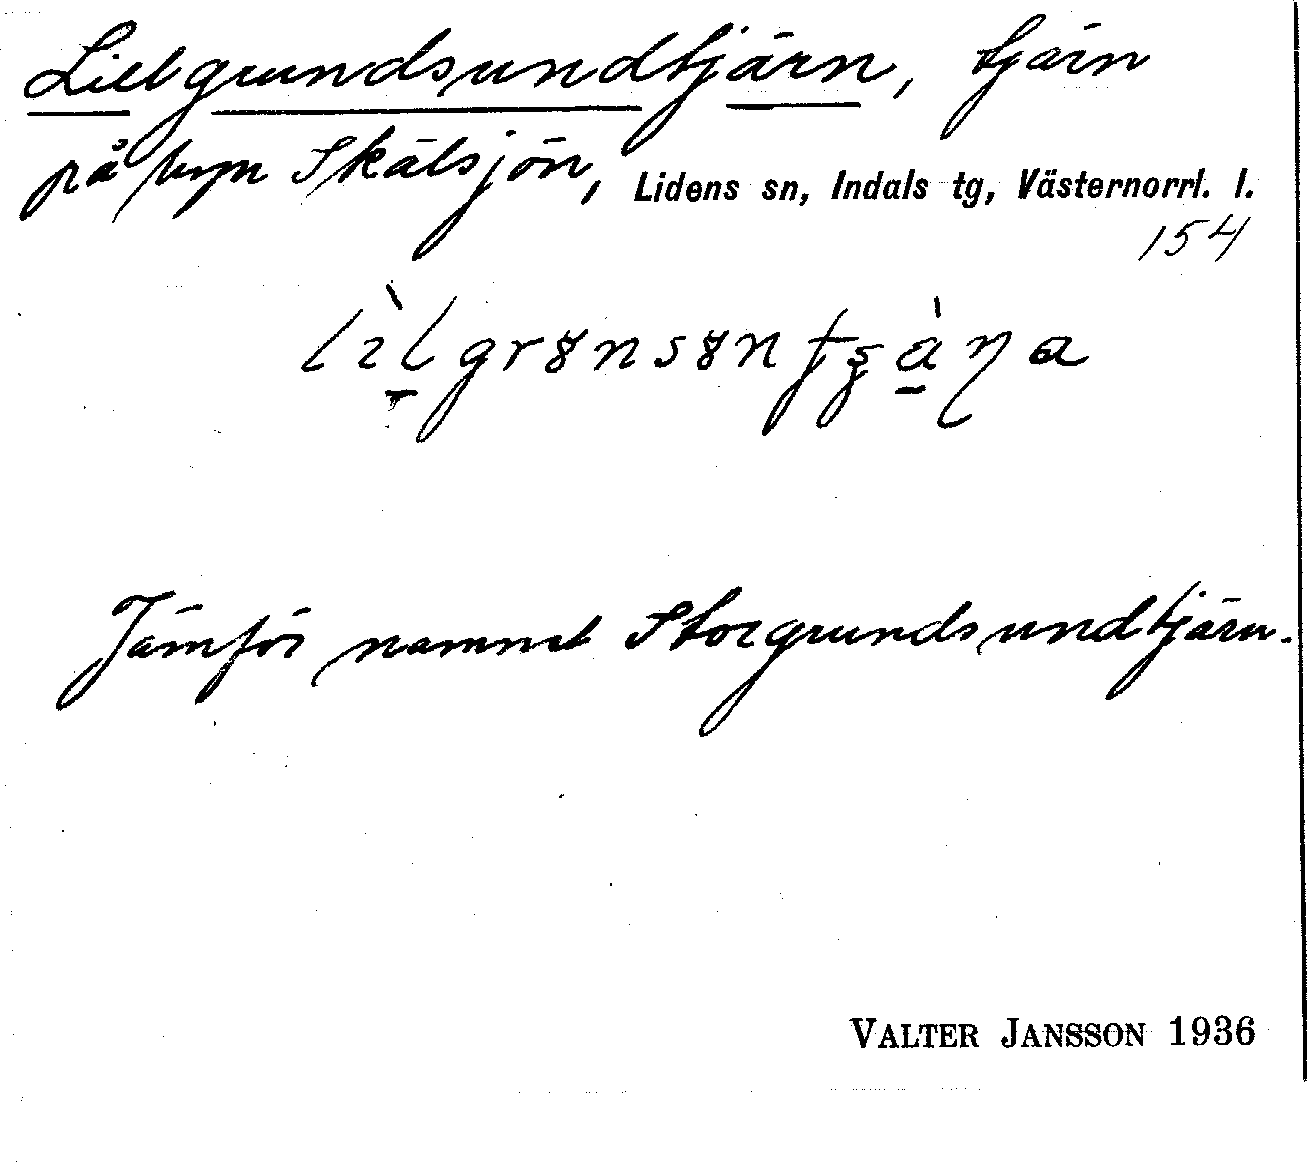 Lillgrundsundtjärn, tjärn
på byn Skälsjön, Lidens sn, Indals tg, Västernorrl. l.
154
Jämför namnet Storgrundsundtjärn.
VALTER JANSSON 1936